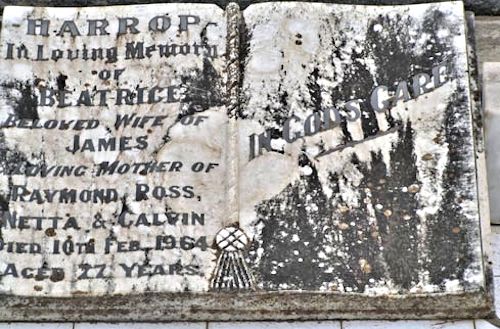 HARROP
In Loving Memory
OF
BEATRICE
BELOVED WIFE OF
JAMES
LOVING MOTHER OF
RAYMOND, ROSS,
NETTA & CALVIN
DIED 10TH FEB. 1964
AGED 77 YEARS.
IN GOD'S CARE